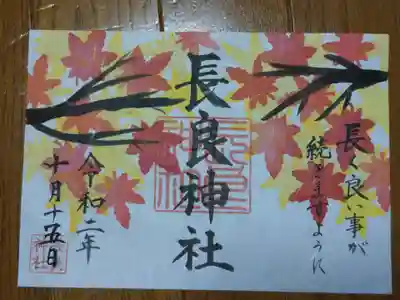 長く良い事が
続きますように
長良神社
令和二年
十月十五日